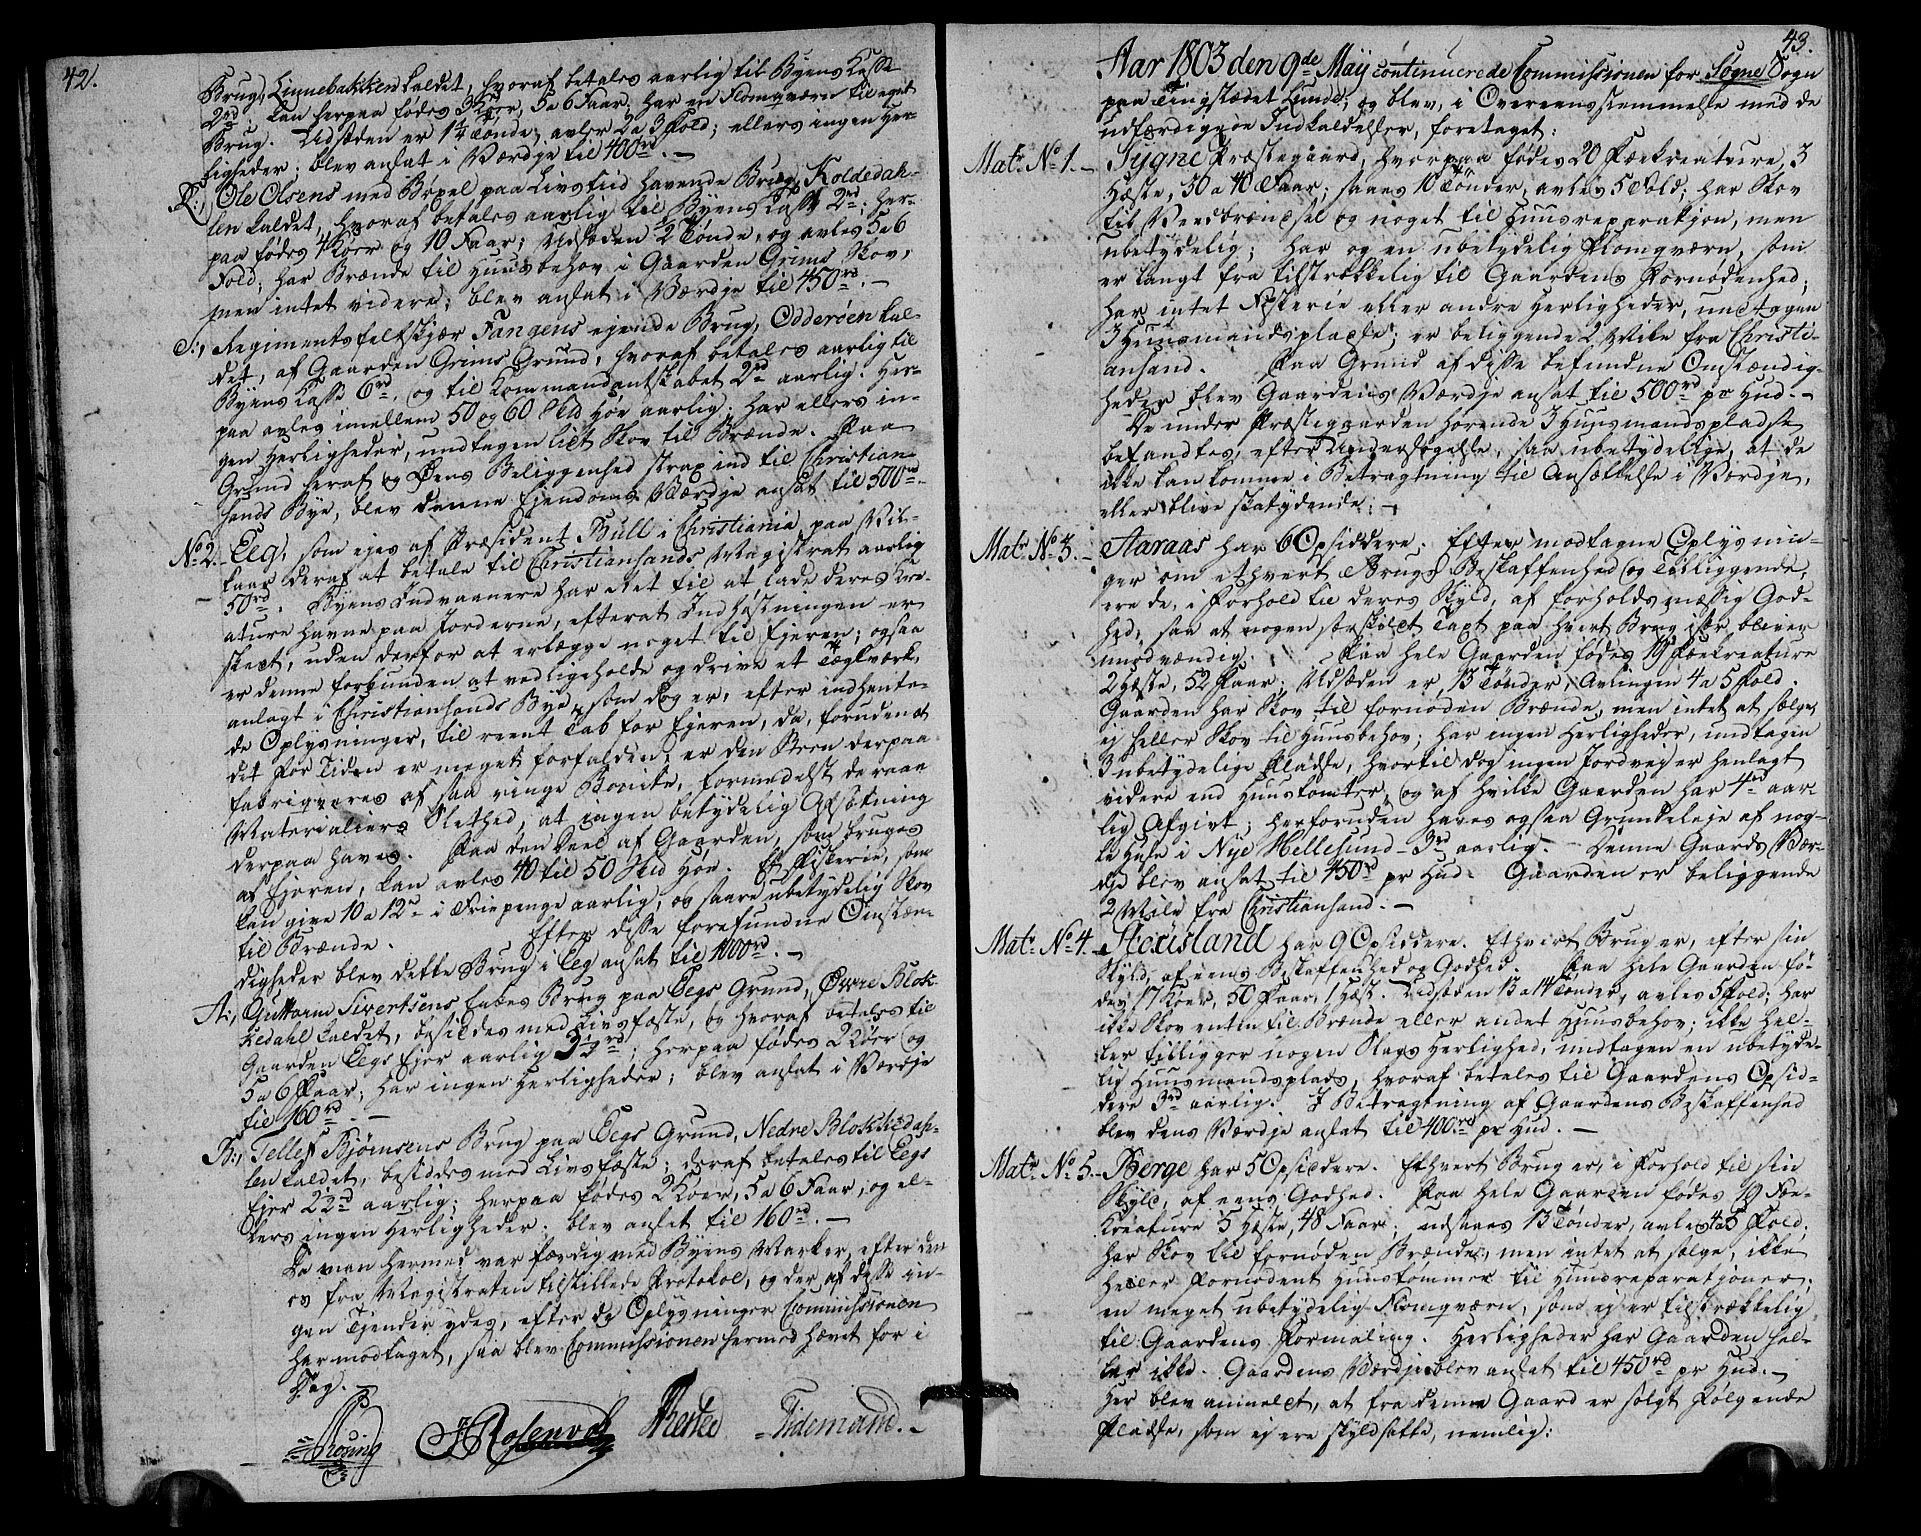 42.
Brug, Linnebakken kaldet, hvoraf betales aarlig til Byens Kasse
2rd. Kan herpaa fødes 3 Køer, 5 a 6 Faar, har en Flomqværn til eget
Brug. Udsæden er 1 1/4 Tønde, avler 2 a 3 Fold; ellers ingen Her-
ligheder; blev ansat i Værdje til 400rd. –
R., Ole Olsens med Bøxel paa Livstiid havende Brug, Koldedah-
len kaldet, hvoraf betales aarlig til Byens Kasse 2rd; her-
paa fødes 4 Køer og 10 Faar; Udsæden 2 Tønde, og avles 5 a 6
Fold; har Brænde til Huusbehov i Gaarden Grims Skov,
men intet videre; blev ansat i Værdje til 450rd. –
S., Regimentsfeltskjær Fangens ejende Brug, Odderøen kal-
det, af Gaarden Grims Grund, hvoraf betales aarlig til
Byens Kasse 6rd, og til Kommandantskabet 2rd aarlig. Her-
paa avles imellem 50 og 60 Skd Høe aarlig; har ellers in-
gen Herligheder, undtagen lidt Skov til Brænde. Paa
Grund heraf og Øens Beliggenhed strax ind til Christian-
sands Bye, blev denne Ejendoms Værdje ansat til 500rd. –
No 2. – Eeg, som ejes af Præsident Bull i Christiania, paa Vil-
kaar deraf at betale til Christiansands Magistrat aarlig
50rd. Byens Indvaanere har Ret til at lade deres Kre-
ature havne paa Jorderne, efterat Indhøstningen er
skeet, uden derfor at erlægge noget til Ejeren; ogsaa
er denne forbunden at vedligeholde og drive et Teglværk,
anlagt i Christiansands Bye, som dog er, efter indhente-
de Oplysninger, til reent Tab for Ejeren, da, foruden at
det for Tiden er meget forfalden, er den Steen derpaa
fabriqveres af saa ringe Bonite, formedelst de raae
Materialiers Slethed, at ingen betydelig Afsætning
derpaa haves. Paa den Deel af Gaarden, som bruges
af Ejeren, kan avles 40 til 50 Skd Høe. Et Fisterie, som
kan give 10 a 12rd i Friepenge aarlig, og saare ubetydelig Skov
til Brænde. Efter disse forefundne Omstæn-
digheder blev dette Brug i Eeg ansat til 1000rd. –
A., Guttorm Sivertsens habes Brug paa Eegs Grund, Øvre Blok-
kedahl kaldet, besiddes med Livsfæste, og hvoraf betales til
Gaarden Eegs Ejer aarlig 3 1/3rd; herpaa fødes 2 Køer og
5 a 6 Faar; har ingen Herligheder; blev ansat i Værdje
til 160rd. –
B., Tellef Bjørnsens Brug paa Eegs Grund, Nedre Blokkedah-
len kaldet, besiddes med Livsfæste; deraf betales til Eegs
Ejer 2 1/2rd aarlig; herpaa fødes 2 Køer, 5 a 6 Faar, og el-
lers ingen Herligheder. blev ansat til 160rd. –
Da man hermed var færdig med Byens Marker, efter den
os fra Magistraten tilstillede Protokol, og der af disse in-
gen Tjender ydes, efter de Oplysninger Commissionen
har modtaget, saa blev Commissionen hermed hævet for i
Dag.
JRosenvold
Tidemand. –
43.
Aar 1803 den 9de Maij continuerede Commissionen for Søgne Sogn
paa Tingstædet Lunde, og blev, i Overeensstemmelse med de
udfærdigede Indkaldelser, foretaget:
Matr. No 1. – Sygne Præstegaard, hvorpaa fødes 20 Fækreature, 3
Hæste, 30 a 40 Faar; saaes 10 Tønder, avles 5 Fold; har Skov
til Veedbrændsel og noget til Huusreparatjon, men
ubetydelig; har og en ubetydelig Flomqværn, som
er langt fra tilstrækkelig til Gaardens Fornødenhed;
har intet Fiskerie eller andre Herligheder, undtagen
3 Huusmandspladse; er beliggende 2 Mile fra Christi-
ansand. Paa Grund af disse befundne Omstændig-
heder blev Gaardens Værdje ansat til 500rd pr Hud. –
De under Præstegaarden hørende 3 Huusmandspladse
befandtes, efter Undersøgelse, saa ubetydelige, at de
ikke kan komme i Betragtning til Ansættelse i Værdje,
eller blive skatydende. –
Matr. No 3. – Aaraas har 6 Opsiddere. Efter modtagne Oplysnin-
ger om ethvert Brugs Beskaffenhed og Tilliggende,
ere de, i Forhold til deres Skyld, af forholdsmæssig God-
hed, saa at nogen særskilt Taxt paa hvert Brug især bliver
unødvændig. Paa hele Gaarden fødes 19 Fækreature
2 Hæste, 52 Faar. Udsæden er 13 Tønder, Avlingen 4 a 5 Fold.
Gaarden har Skov til fornøden Brænde, men intet at sælge,
ej heller Skov til Huusbehov; har ingen Herligheder, undtagen
3 ubetydelige Pladse, hvortil dog ingen Jordvej er henlagt
videre end Huustomter, og af hvilke Gaarden har 4rd aar-
lig Afgivt; herforuden haves ogsaa Grundeleje af nog-
le Huse i Nye Hellesund – 3rd aarlig. – Denne Gaards Vær-
dje blev ansat til 450rd pr Hud. Gaarden er beliggende
2 Mile fra Christiansand. –
Matr. No 4. – Stousland har 9 Opsiddere. Ethvert Brug er, efter sin
Skyld, af eens Beskaffenhed og Godhed. Paa hele Gaarden fø-
des 17 Køer, 50 Faar, 1 Hæst. Udsæden 13 a 14 Tønder, avles 5 Fold; har
ikke Skov enten til Brænde eller andet Huusbehov; ikke hel-
ler tilligger nogen Slags Herlighed, undtagen en ubetyde-
lig Huusmandsplads, hvoraf betales til Gaardens Opsid-
dere 3rd aarlig. I Betragtning af Gaardens Beskaffenhed
blev dens Værdje ansat til 400rd pr Hud. –
Matr. No 5. – Berge har 5 Opsiddere. Ethvert Brug er, i Forhold til sin
Skyld, af eens Godhed. Paa hele Gaarden fødes 19 Fæe-
Kreature 5 Hæste, 48 Faar; udsaaes 13 Tønder, avles 4 a 5 Fold;
har Skov til fornøden Brænde, men intet at sælge, ikke
heller Fornødent Huustømmer til Huusreparatjoner;
en meget ubetydelig Flomqværn, som ej er tilstrækkelig
til Gaardens Formaling. Herligheder har Gaarden hel-
ler ikke. Gaardens Værdje blev ansat til 450rd pr Hud. –
Her blev anmeldt, at fra denne Gaard er solgt følgende
Pladse, som ej ere skyldsatte, nemlig: